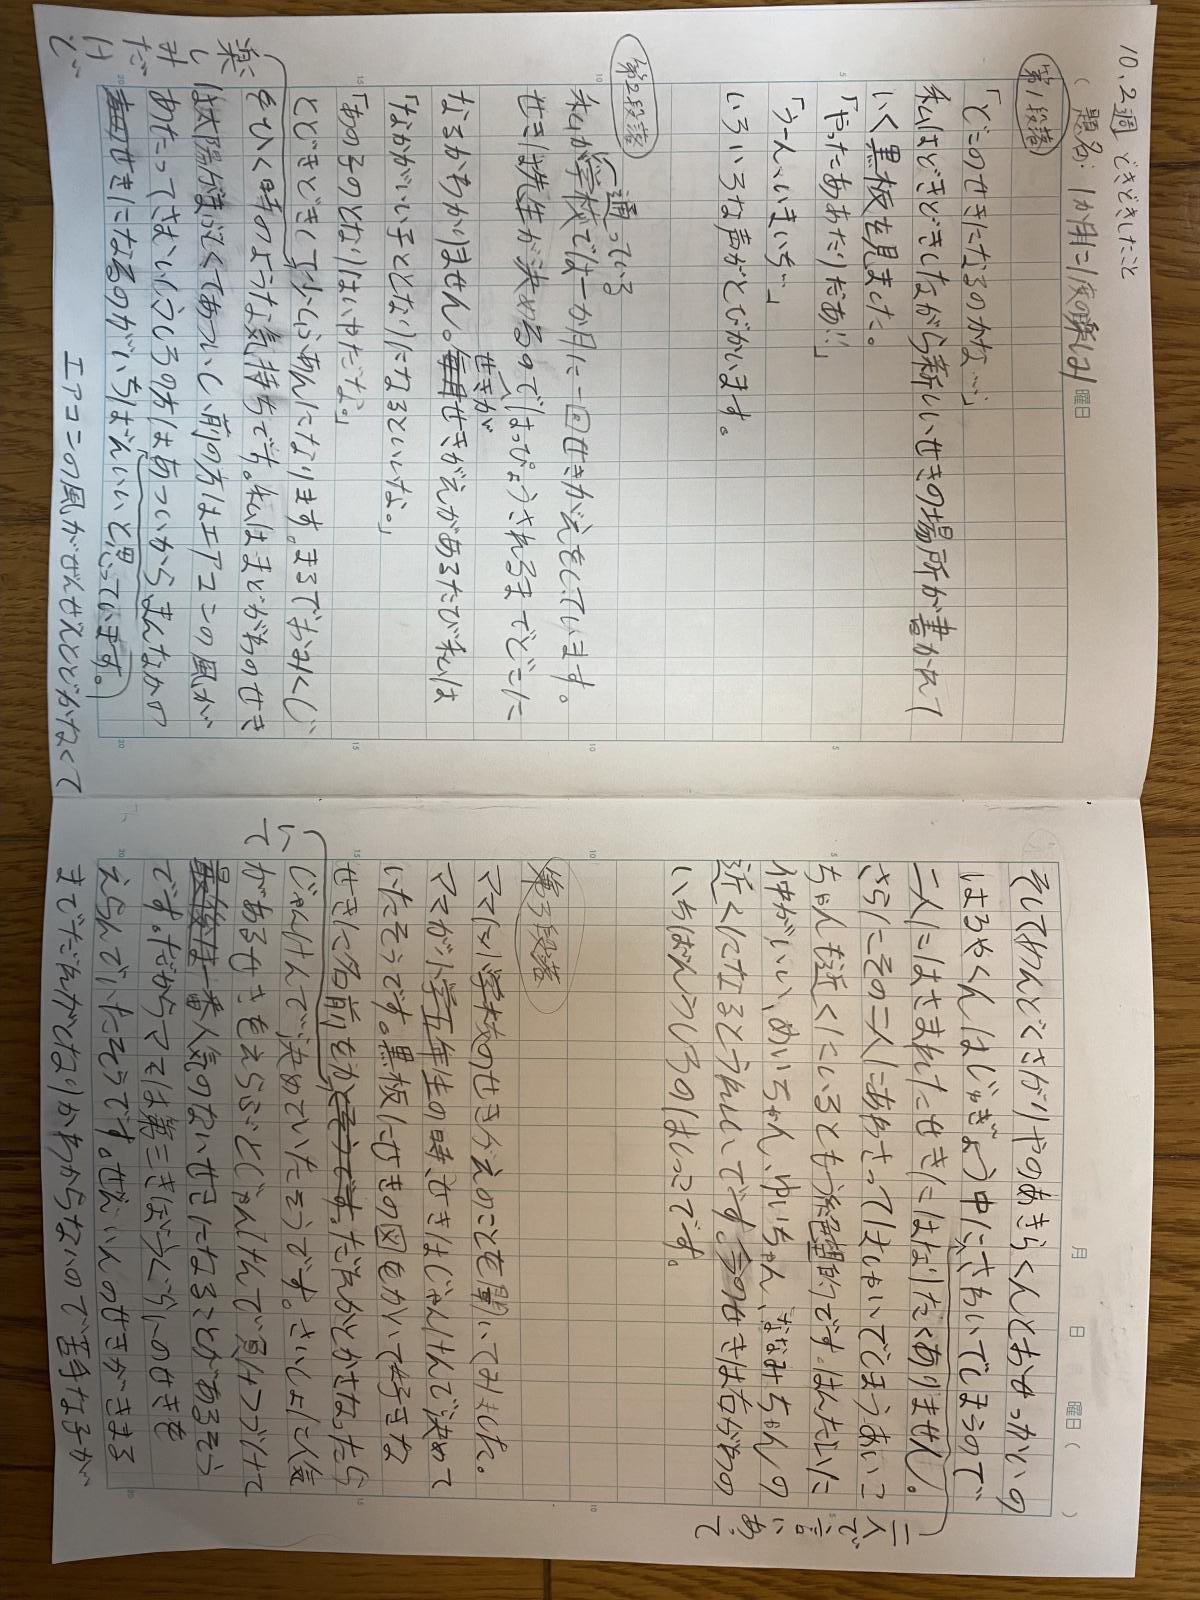 10.2週 どきどきしたこと
(題名: 1か月に1度の楽しみ
曜日
第1段落
「どこのせきになるのかな…」
私はどきどきしながら新しいせきの場所が書かれて
いく黒板を見ました。
「やったああたりだあ!!」
「うーん、いまいち…」
いろいろな声がとびかいます。
第2段落
私が通っている学校では一か月に一回せきがえをしています。
せきは先生が決めるのではっぴょうされるまでどこに
なるかわかりません。せきがえがあるたびに私は
「なかがいい子ととなりになるといいな。」
「あの子のとなりはいやだな。」
とどきどきして少しふあんになります。まるでおみくじ
をひく時のような気持ちです。私はまどがわのせき
は太陽がまぶしくてあついし、前の方はエアコンの風が
あたってさむいしうしろの方はあついからまんなかの
せきになるのがいちばんいいと思っています。
エアコンの風がぜんぜんとどかなくて
楽しみだけど
月 日 曜日( )
そしてわんぱくさがりやのあきらくんとおせっかいの
はるやくんはじゅぎょう中にさわいでしまうので
二人にはさまれたせきにはなりたくありません。
二人で言いあって
さらにその二人にあわさって
ちゃんも近くにいるともう絶望的です。はんたいに
仲がいい、めいちゃん、ゆいちゃん、ななみちゃんの
近くになるとうれしいです。今のせきは右がわの
いちばんうしろのはしっこです。
第3段落
ママに小学校のせきがえのことを聞いてみました。
ママが小学五年生の時、せきはじゃんけんで決めて
いたそうです。黒板にせきの図をかいて好きな
せきに名前をかくそうです。だれかとかさなったら
じゃんけんで決めていたそうです。さいしょに人気
があるせきをえらぶとじゃんけんで負けつづけて
最後は一番人気のないせきになることがあるそう
です。だからママは第三きぼうぐらいのせきを
えらんでいたそうです。ぜんいんのせきがきまる
までだれがとなりかわからないので